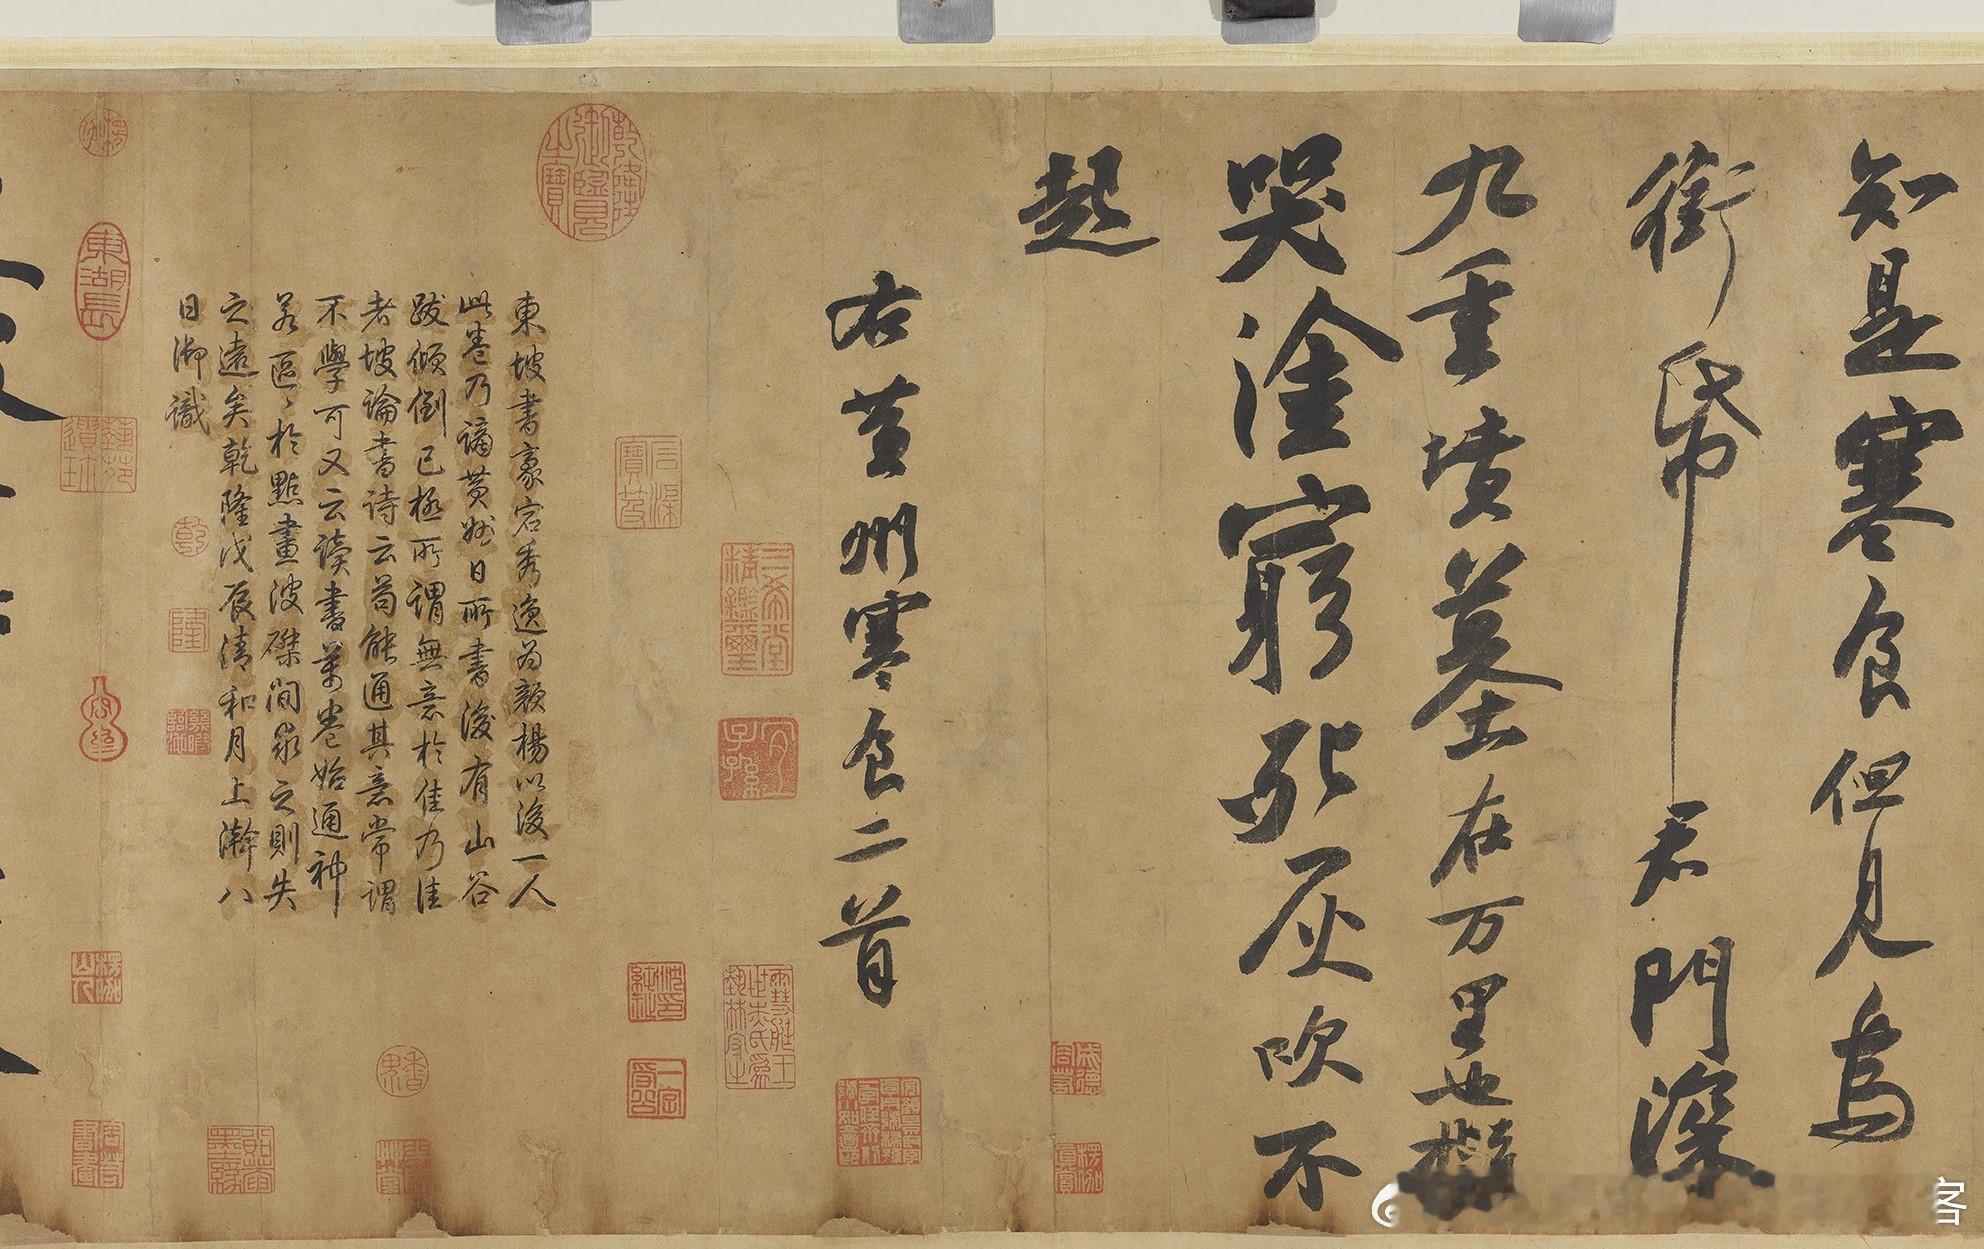 知是寒食但見烏
銜帋君門深
九重墳墓在万里也擬
哭塗窮死灰吹不
起
右黃州寒食二首
乾隆御覽之寶
三希堂精鑑璽
宜子孫
東坡書豪宕秀逸為顏楊以後一人
此卷乃謫黃州日所書後有山谷
跋傾倒已極所謂無意於佳乃佳
者坡論書詩云苟能通其意常謂
不學可又云讀書萬卷始通神
若區〻於點畫波磔間求之則失
之遠矣乾隆戊辰清和月上澣八
日御識
乾
隆
東湖長
客